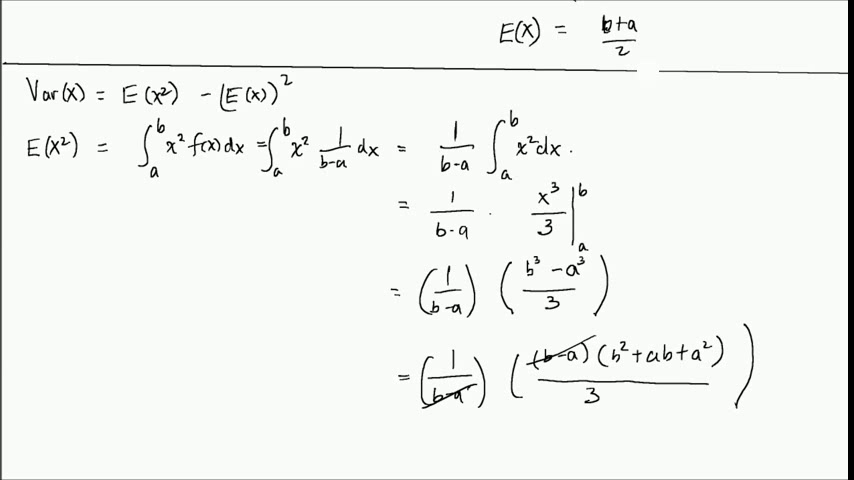 E(X) = b+a/2
Var(X) = E(X²) - (E(X))²
E(X²) = ∫ₐᵇ x² f(x) dx = ∫ₐᵇ x² 1/(b-a) dx = 1/(b-a) ∫ₐᵇ x² dx.
= 1/(b-a) · x³/3 |ₐᵇ
= (1/(b-a)) ((b³ - a³)/3)
= (1/(b-a)) ((b-a)(b² + ab + a²)/3)